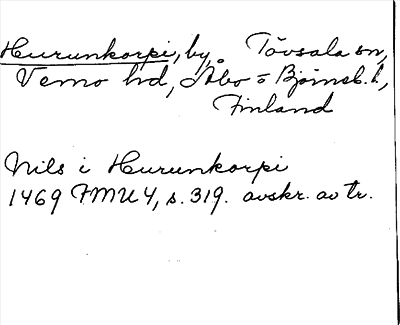 Hurunkorpi, by, Tövsala sn,
Vemo hd, Åbo = Björneb. l.,
Finland
Nils i Hurunkorpi
1469 FMU 4, s. 319. avskr. av tr.